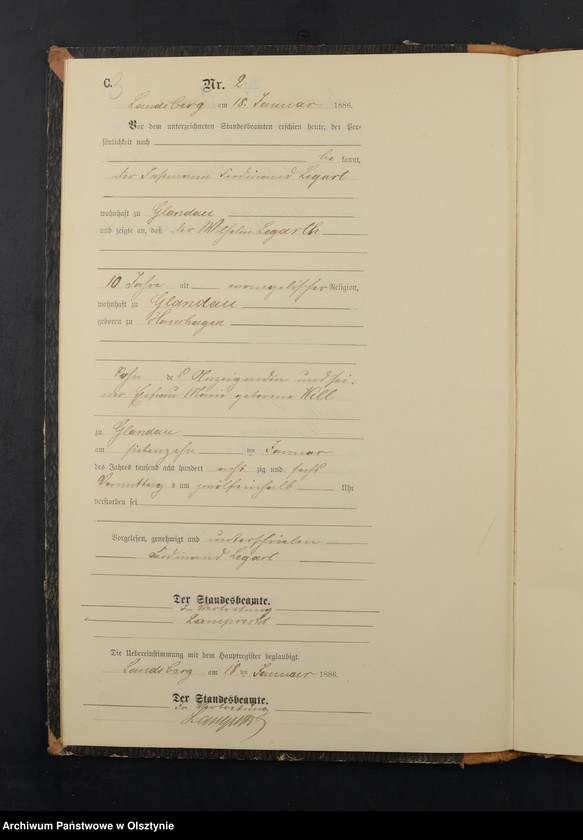 C.
Nr. 2
Landsberg am 18. Januar 1886.
Vor dem unterzeichneten Standesbeamten erschien heute, der Per-
sönlichkeit nach
be kannt,
der Ferdinand Legart
wohnhaft zu Glandau
und zeigte an, daß der Wilhelm Legarth
10 Jahre alt evangelischer Religion,
wohnhaft zu Glandau
geboren zu
Sohn des Anzeigenden und sei-
ner Ehefrau Marie geborene Will
zu Glandau
am siebenzehn ten Januar
des Jahres tausend acht hundert acht zig und sechs
Vormittags um zwölfeinhalb Uhr
verstorben sei
Vorgelesen, genehmigt und unterschrieben
Ferdinand Legart
Der Standesbeamte.
In Vertretung
Lamprecht
Die Uebereinstimmung mit dem Hauptregister beglaubigt.
Landsberg am 18ten Januar 1886.
Der Standesbeamte.
In Vertretung
Lamprecht
Archiwum Państwowe w Olsztynie